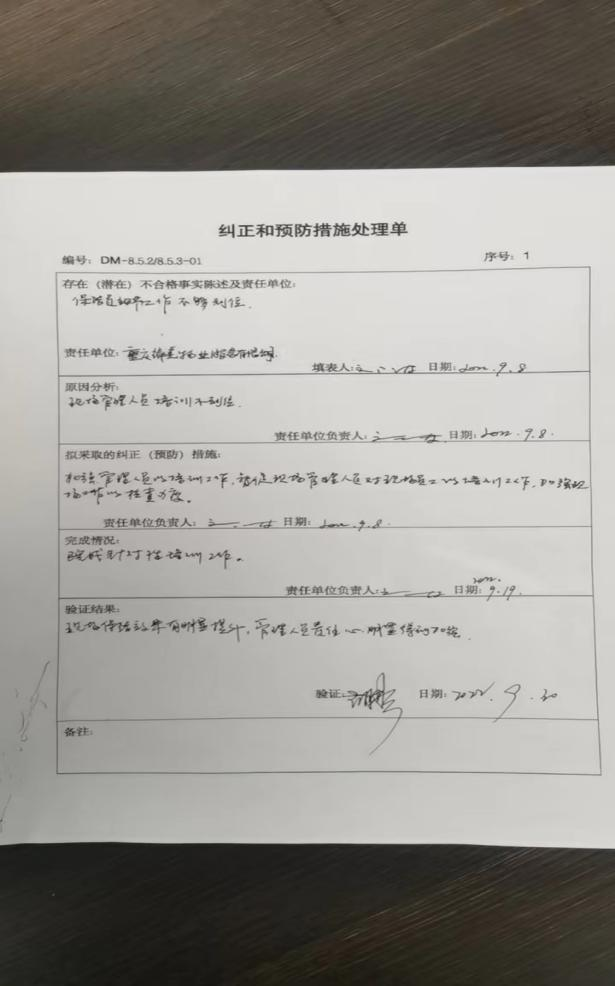 纠正和预防措施处理单
编号: DM-8.5.2/8.5.3-01 序号: 1
存在(潜在)不合格事实陈述及责任单位:
保洁员 工作不够到位.
责任单位: 重庆 物业 有限公司
填表人: 日期: 2022.9.8
原因分析:
现场管理人员培训不到位.
责任单位负责人: 日期: 2022.9.8.
拟采取的纠正(预防)措施:
加强管理人员的培训工作,督促现场管理人员对现场员工的培训工作,加强现
场工作的检查力度。
责任单位负责人: 日期: 2022.9.8.
完成情况:
完成针对性培训工作。
责任单位负责人: 日期: 2022.9.19.
验证结果:
现场保洁效果有明显提升,管理人员责任心明显得到加强.
验证: 日期: 2022.9.20
备注: